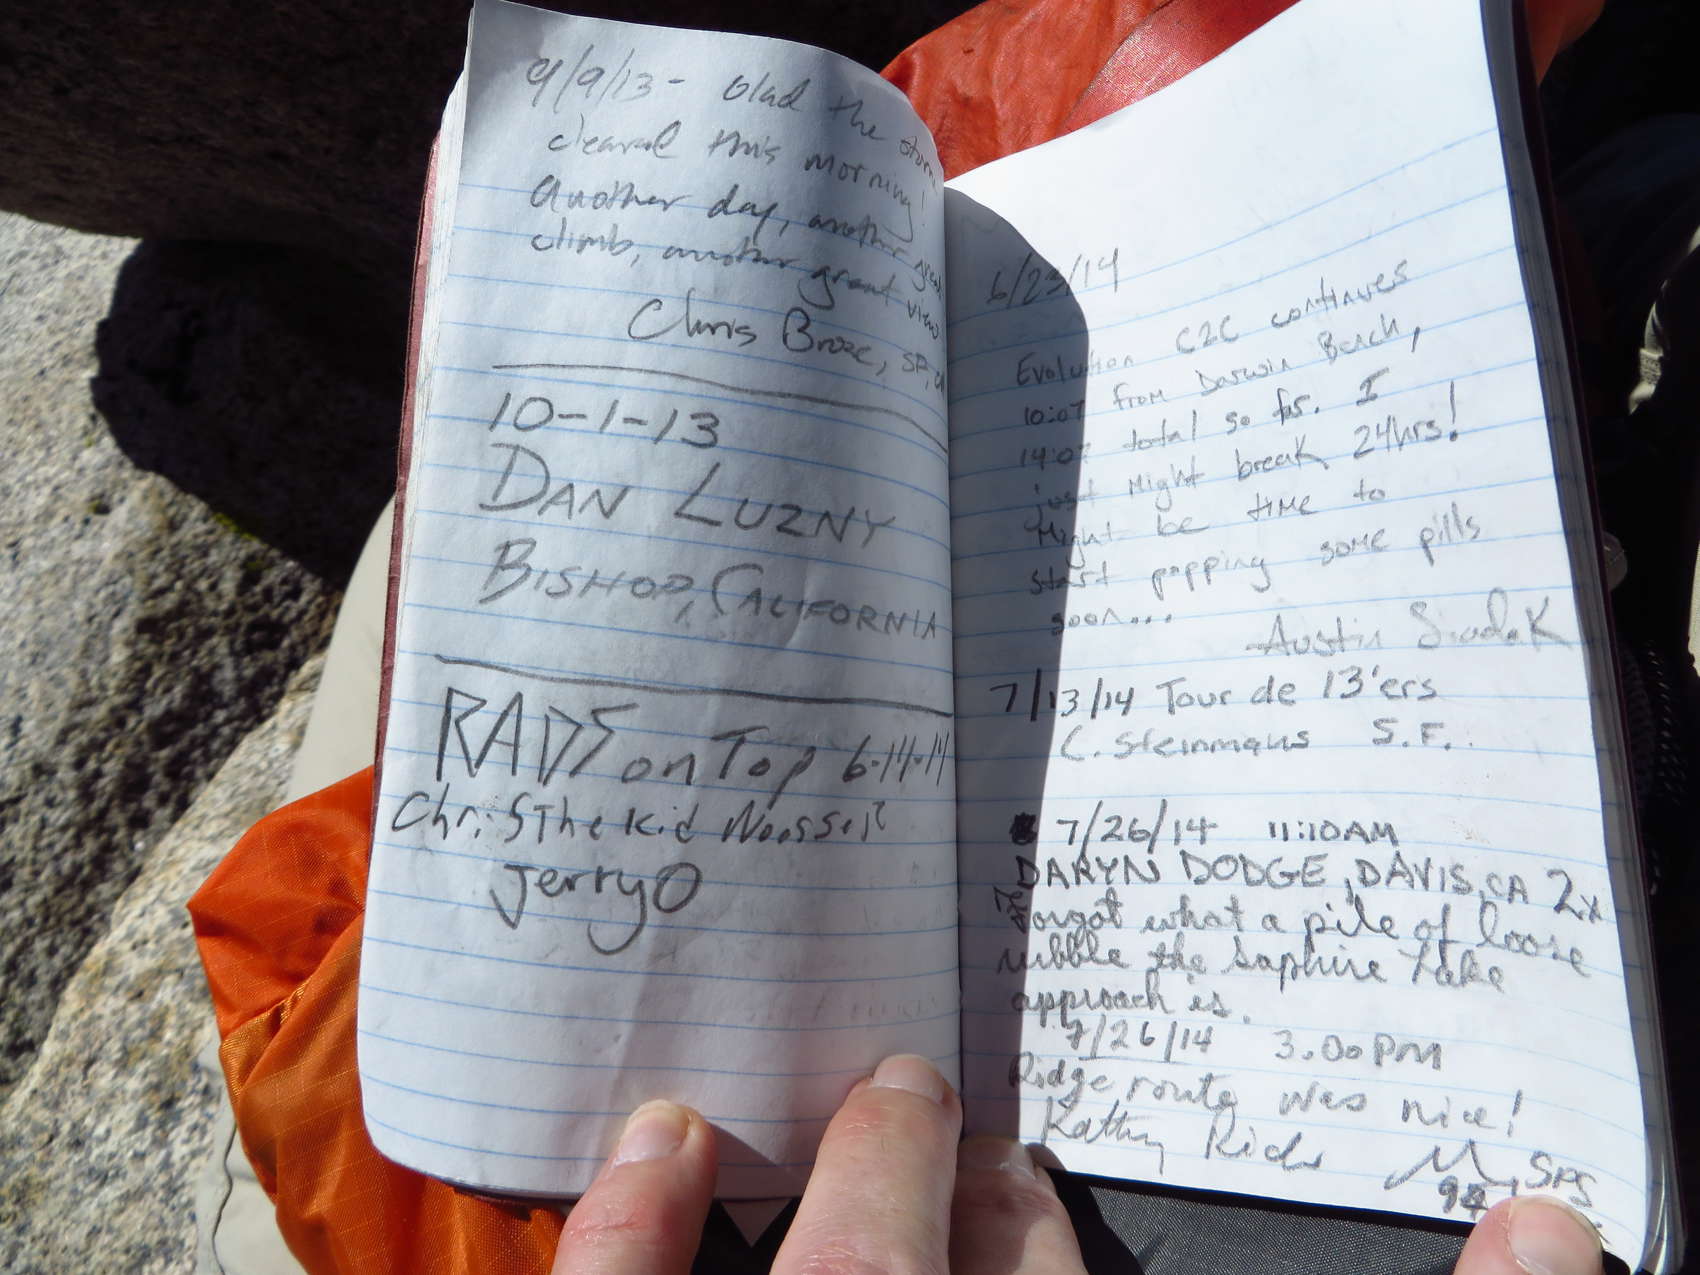 9/9/13 - Glad the storm
cleared this morning!
Another day, another great
climb, another great view
Chris Broze, SP, CA
10-1-13
DAN LUZNY
BISHOP, CALIFORNIA
RADS on Top 6.14.14
Chris The Kid
Jerry O
6/23/14
Evolution C2C continues
10:07 from Darwin Bench,
14:07 total so far. I
just might break 24hrs!
Might be time to
start popping some pills
soon...
-Austin
7/13/14 Tour de 13'ers
C. Steinmans S.F.
7/26/14 11:10AM
DARYN DODGE, DAVIS, CA 2x
Forgot what a pile of loose
rubble the Saphire Lake
approach is.
7/26/14 3.00PM
Ridge route was nice!
Kathy SPS